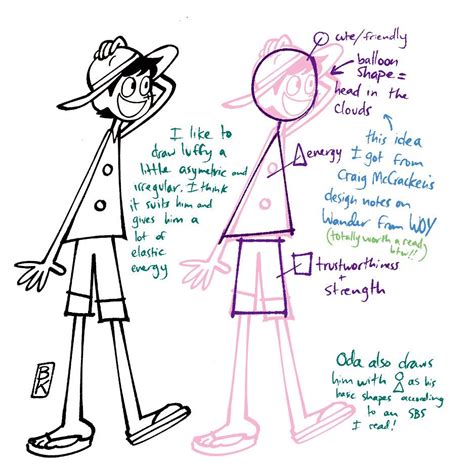 cute/friendly
balloon
shape =
head in the
clouds
I like to
draw luffy a
little asymetric and
irregular. I think
it suits him and
gives him a
lot of
elastic
energy
energy
this idea
I got from
Craig McCracken's
design notes on
Wander from WOY
(totally worth a read
btw!!)
trustworthiness
+
strength
BK
Oda also draws
him with ○ △ as his
basic shapes according
to an SBS
I read!